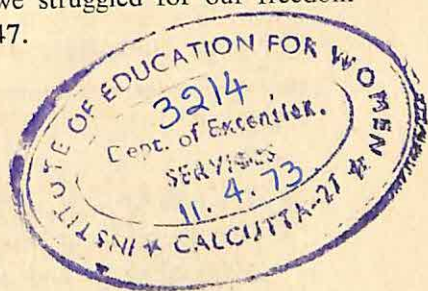 we struggled for our freedom
47.
INSTITUTE OF EDUCATION FOR WOMEN * CALCUTTA-27 *
3214
Dept. of Extention.
SERVICES
11. 4. 73